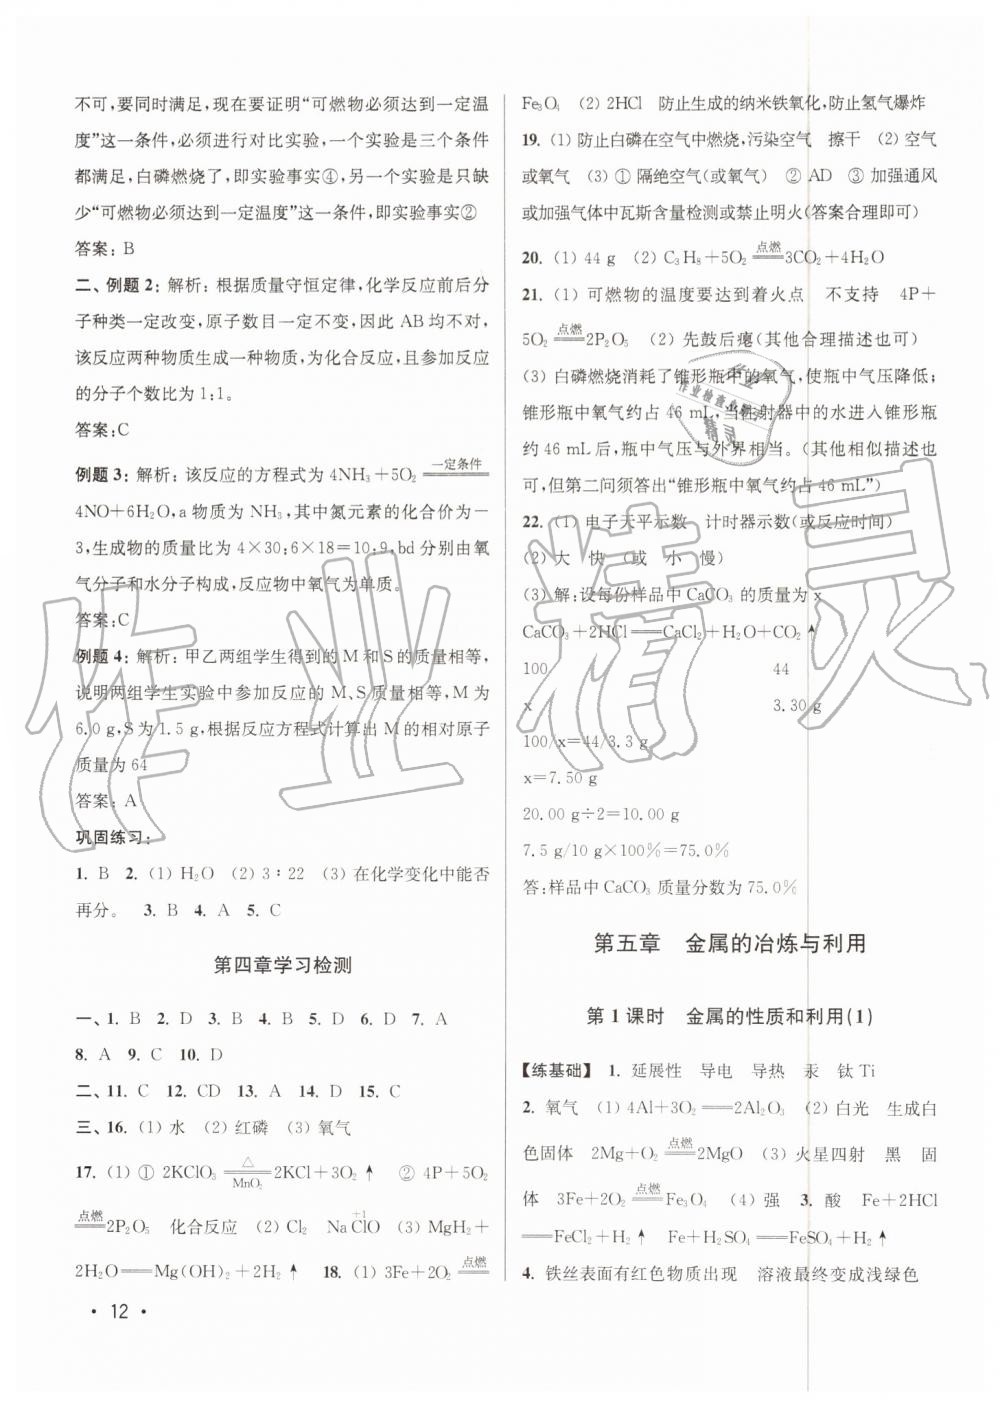 不可,要同时满足,现在要证明“可燃物必须达到一定温
度”这一条件,必须进行对比实验,一个实验是三个条件
都满足,白磷燃烧了,即实验事实④,另一个实验是只缺
少“可燃物必须达到一定温度”这一条件,即实验事实②
答案:B
二、例题2:解析:根据质量守恒定律,化学反应前后分
子种类一定改变,原子数目一定不变,因此 AB均不对,
该反应两种物质生成一种物质,为化合反应,且参加反应
的分子个数比为1:1。
答案:C
例题3:解析:该反应的方程式为4NH₃+5O₂ 一定条件
4NO+6H₂O,a物质为NH₃,其中氮元素的化合价为-
3,生成物的质量比为4×30:6×18=10:9,bd分别由氧
气分子和水分子构成,反应物中氧气为单质。
答案:C
例题4:解析:甲乙两组学生得到的M和S的质量相等,
说明两组学生实验中参加反应的M、S质量相等,M为
6.0 g,S为1.5 g,根据反应方程式计算出M的相对原子
质量为64
答案:A
巩固练习:
1. B 2. (1) H₂O (2) 3:22 (3) 在化学变化中能否
再分。 3. B 4. A 5. C
第四章学习检测
一、1. B 2. D 3. B 4. B 5. D 6. D 7. A
8. A 9. C 10. D
二、11. C 12. CD 13. A 14. D 15. D
三、16. (1) 水 (2) 红磷 (3) 氧气
17. (1) ① 2KClO₃ △ MnO₂ 2KCl+3O₂↑ ② 4P+5O₂
点燃 2P₂O₅ 化合反应 (2) Cl₂ NaClO +1 (3) MgH₂+
2H₂O══Mg(OH)₂+2H₂↑ 18. (1) 3Fe+2O₂ 点燃
· 12 ·
Fe₃O₄ (2) 2HCl 防止生成的纳米铁氧化,防止氢气爆炸
19. (1) 防止白磷在空气中燃烧,污染空气 擦干 (2) 空气
或氧气 (3) ① 隔绝空气(或氧气) ② AD ③ 加强通风
或加强气体中瓦斯含量检测或禁止明火(答案合理即可)
20. (1) 44 g (2) C₃H₈+5O₂ 点燃 3CO₂+4H₂O
21. (1) 可燃物的温度要达到着火点 不支持 4P+
5O₂ 点燃 2P₂O₅ (2) 先鼓后瘪(其他合理描述也可)
(3) 白磷燃烧消耗了锥形瓶中的氧气,使瓶中气压降低;
锥形瓶中氧气约占46 mL,当注射器中的水进入锥形瓶
约46 mL后,瓶中气压与外界相当。(其他相似描述也
可,但第二问须答出“锥形瓶中氧气约占46 mL”)
22. (1) 电子天平示数 计时器示数(或反应时间)
(2) 大 快 (或 小 慢)
(3) 解:设每份样品中CaCO₃的质量为x
CaCO₃+2HCl══CaCl₂+H₂O+CO₂↑
100 44
x 3.30 g
100/x=44/3.3 g
x=7.50 g
20.00 g÷2=10.00 g
7.5 g/10 g×100%=75.0%
答:样品中CaCO₃质量分数为75.0%
第五章 金属的冶炼与利用
第1课时 金属的性质和利用(1)
【练基础】 1. 延展性 导电 导热 汞 钛Ti
2. 氧气 (1) 4Al+3O₂══2Al₂O₃ (2) 白光 生成白
色固体 2Mg+O₂ 点燃 2MgO (3) 火星四射 黑 固
体 3Fe+2O₂ 点燃 Fe₃O₄ (4) 强 3. 酸 Fe+2HCl
══FeCl₂+H₂↑ Fe+H₂SO₄══FeSO₄+H₂↑
4. 铁丝表面有红色物质出现 溶液最终变成浅绿色
作业精灵
作业检查小帮手
精灵